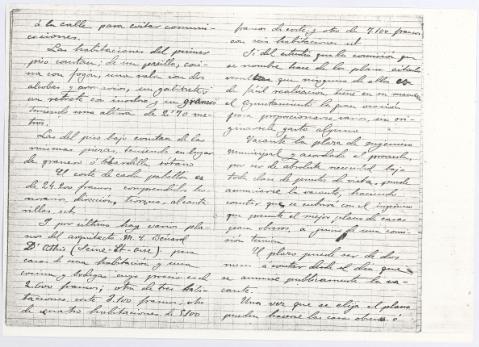 á la calle para evitar comuni-
caciones.
Las habitaciones del primer
piso constan: de un pasillo, coci-
na con fogón, una sala con dos
alcobas y con un gabinete,
un retrete con inodoro y un granero
teniendo una altura de 2'70 me-
tros.
Las del piso bajo constan de las
mismas piezas, teniendo en lugar
de granero ó bhardilla sótano
El coste de cada pabellón es
de 24.200 francos comprendidos ho-
norarios, dirección, licencia, alcanta-
rillas, etc
Y por último hay varios pla-
nos del arquitecto M. Y. Benard
D'Athis (Seine-et-Oise) para
casas de una habitación y una
cocina y bodega cuyo precio es de
2.600 francos; otra de tres habi-
taciones, coste 3.100 francos, otra
de cuatro habitaciones de 5.100
francos de coste, y otro de 7.100 francos
con seis habitaciones, etc
Si del estudio que la comisión que
se nombre hace de los planos citados
resultara que ninguno de ellos es
de fácil realización, tiene en su mano
el Ayuntamiento la gran ocasión
para proporcionarse varios, sin ori-
ginarsele gasto alguno
Vacante la plaza de ingeniero
municipal y acordado el proveerla,
por ser de absoluta necesidad bajo
todos puntos de vista, puede
anunciarse la vacante, haciendo
constar que se cubrirá con el ingeniero
que presente el mejor plano de casas
para obreros, a juicio de una comi-
sión técnica.
El plazo puede ser de dos
meses a contar desde el día que
se anuncie públicamente la va-
cante.
Una vez que se elija el plano
pueden hacerse las casas obreras ó